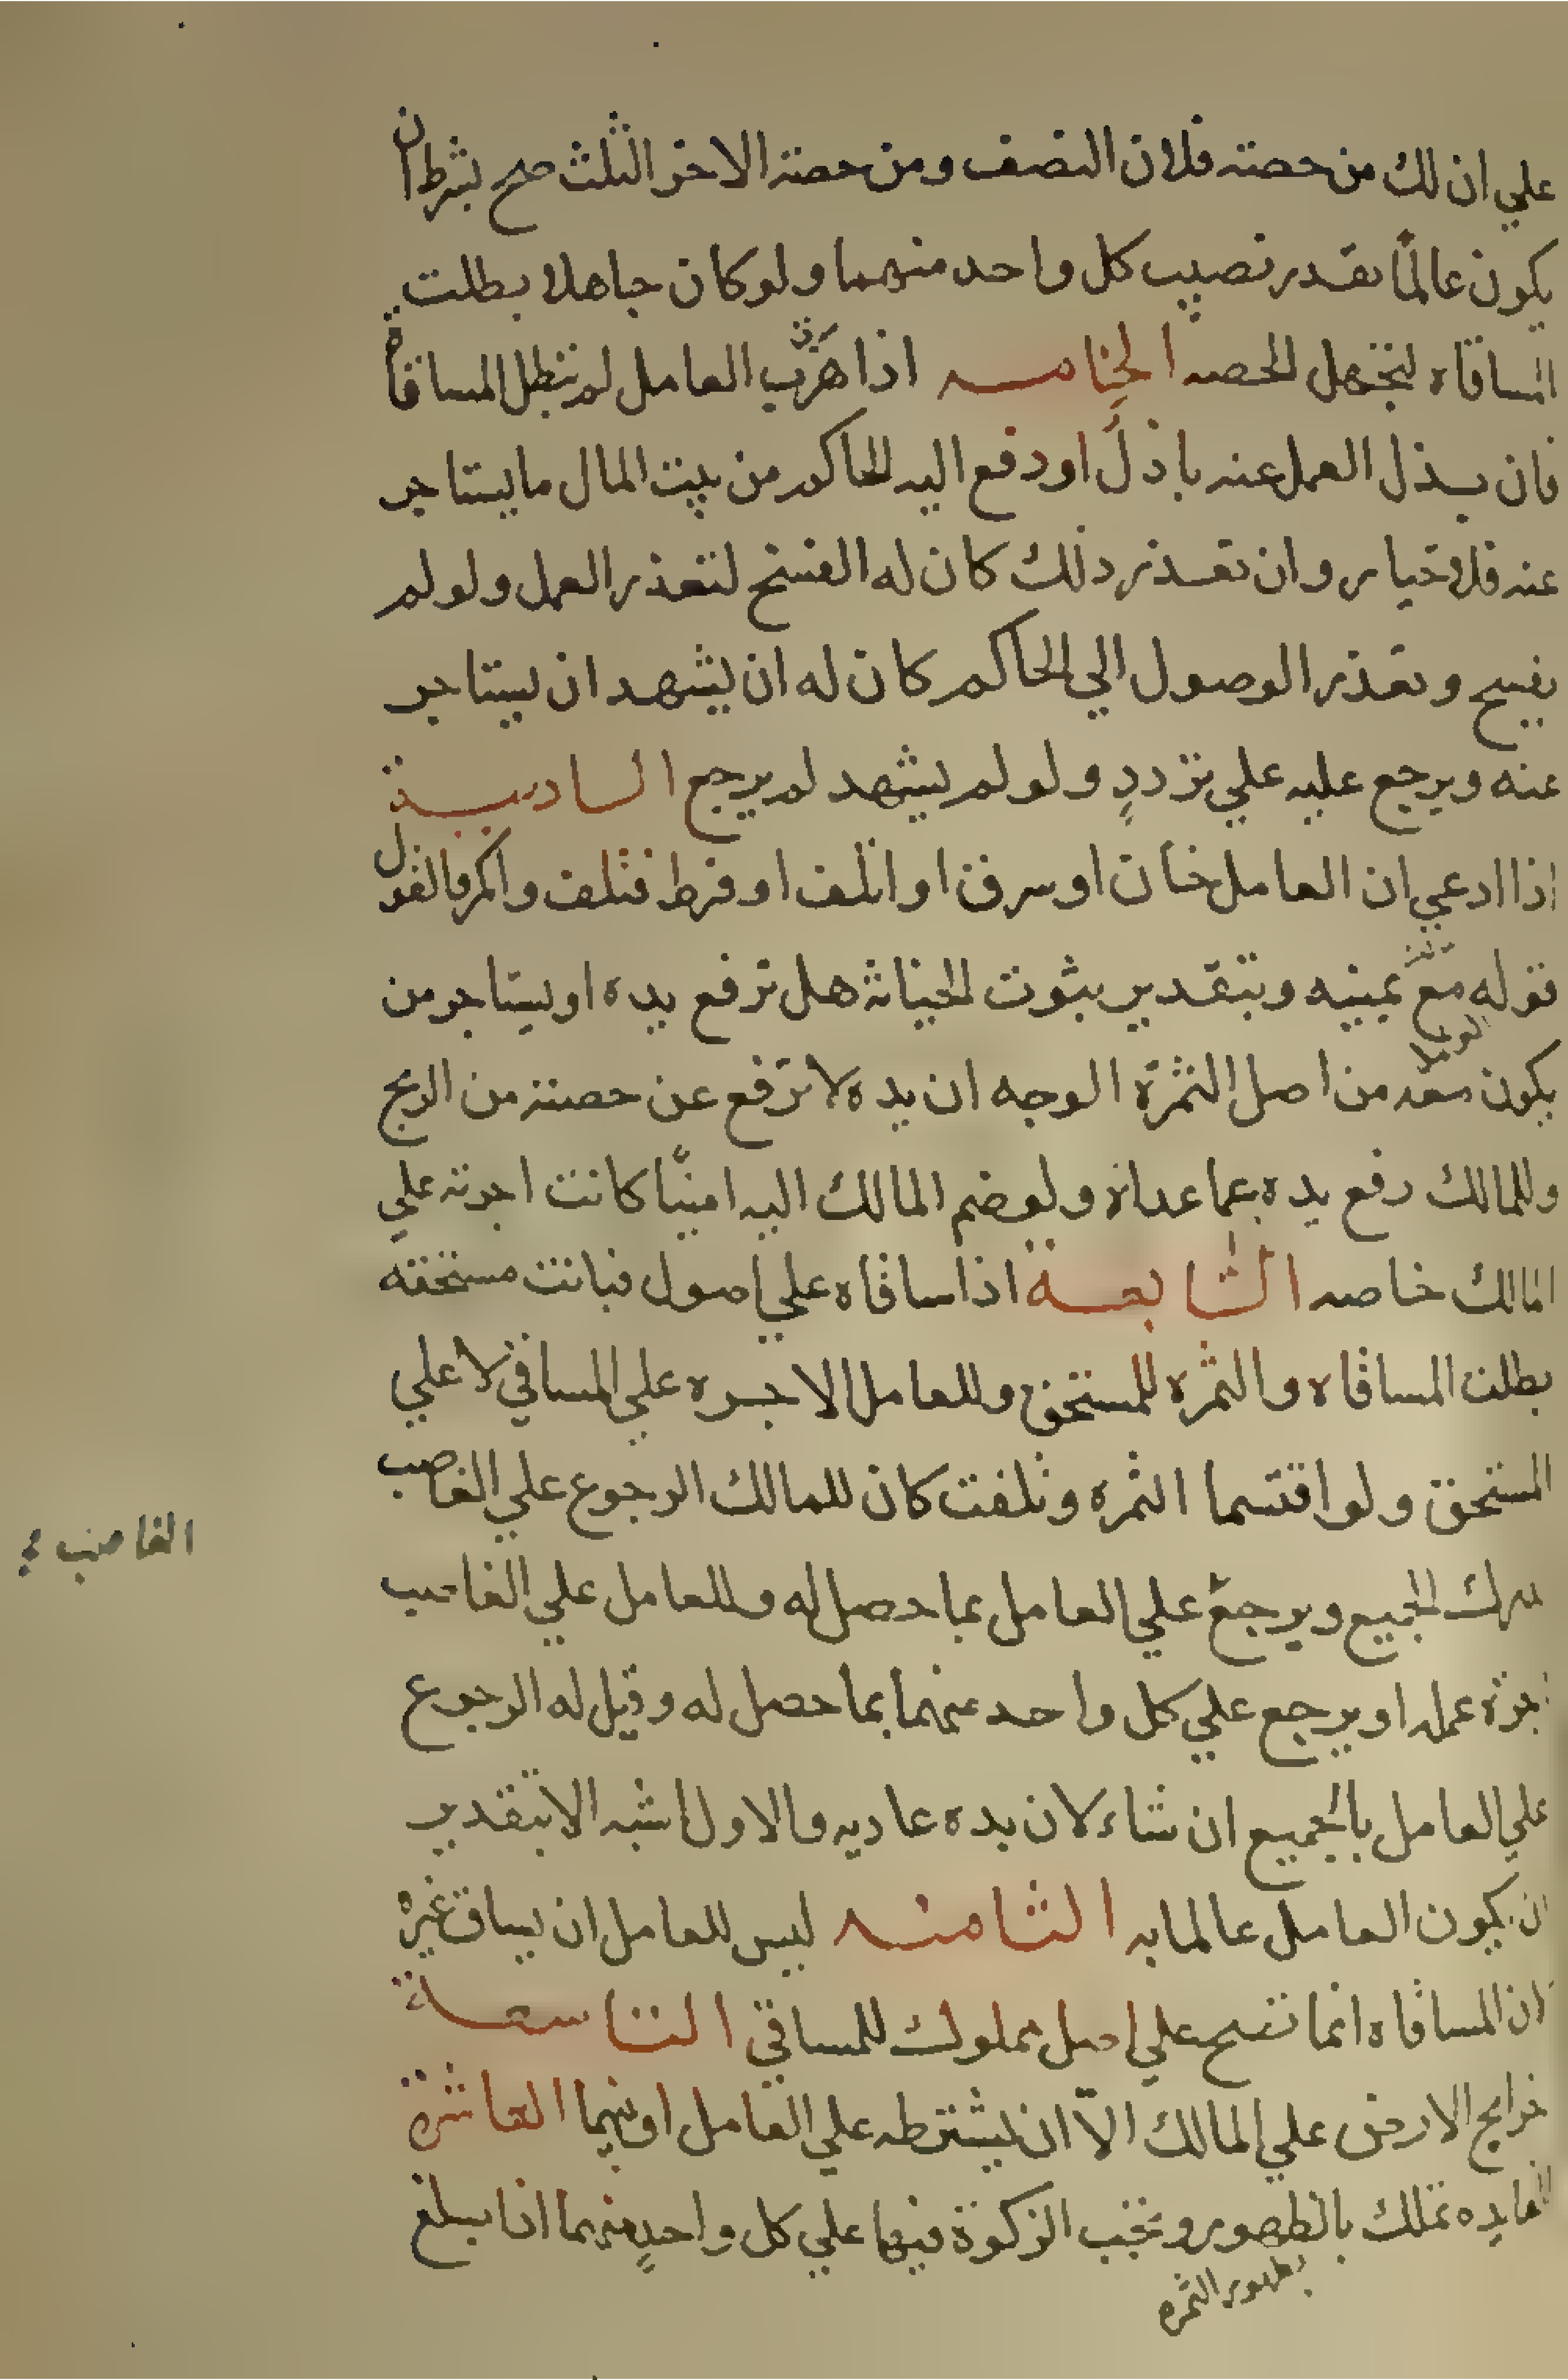 علي ان لك من حصته فلان النصف ومن حصته الاخر الثلث صح بشرط ان
يكون عالمًا بقدر نصيب كل واحد منهما ولو كان جاهلا بطلت
المساقاه لتجهل الحصه الخامسه اذا هرب العامل لم تبطل المساقاة
فان بذل العمل عنه باذل او دفع اليه الحاكم من بيت المال ما يستاجر
عنه فلا خيار وان تعذر ذلك كان له الفسخ لتعذر العمل ولو لم
يفسخ وتعذر الوصول الي الحاكم كان له ان يشهد ان يستاجر
عنه ويرجع عليه علي تردد ولو لم يشهد لم يرجع السادسة
اذا ادعي ان العامل خان او سرق او اتلف او فرط فتلف وانكر فالقول
قوله مع يمينه وبتقدير بثوت الخيانة هل ترفع يده او يستاجر من
يكون معه من اصل الثمرة الوجه ان يده لا ترفع عن حصته من الربح
وللمالك رفع يده عما عداه ولو ضم المالك اليه امينًا كانت اجرته علي
المالك خاصه السابعة اذا ساقاه علي اصول فبانت مستحقه
بطلت المساقاه والثمره للمستحق وللعامل الاجره علي المساقي لا علي
المستحق ولو اقتسما الثمره وتلفت كان للمالك الرجوع علي الغاصب
الغاصب
درك الجميع ويرجع علي العامل بما حصل له وللعامل علي الغاصب
اجرة عمله او يرجع علي كل واحد منهما بما حصل له وقيل له الرجوع
علي العامل بالجميع ان شاء لان يده عاديه والاول اشبه الا بتقدير
ان يكون العامل عالما به الثامنه ليس للعامل ان يساق غيره
لان المساقاه انما تصح علي اصل مملوك للمساقي التاسعة
خراج الارض علي المالك الاّ ان يشترطه علي العامل او بينهما العاشرة
الفايده تملك بالظهور وتجب الزكوة فيها علي كل واحدٍ منهما اذا بلغ
بظهور الثمره